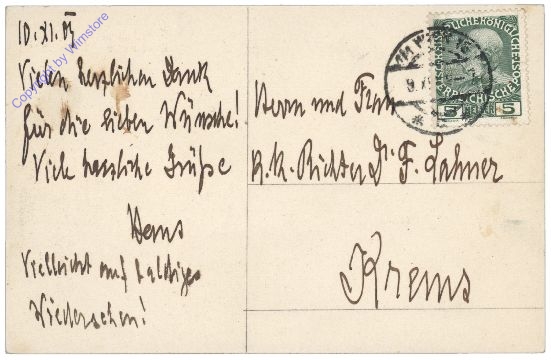 10. XI. 09
Vielen herzlichen Dank
für die lieben Wünsche!
Viele herzliche Grüße
Hans
Vielleicht auf baldiges
Wiedersehen!
Herrn und Frau
k.k. Richter Dr F. Lahner
Krems
5 5
Copyright by Wimstore